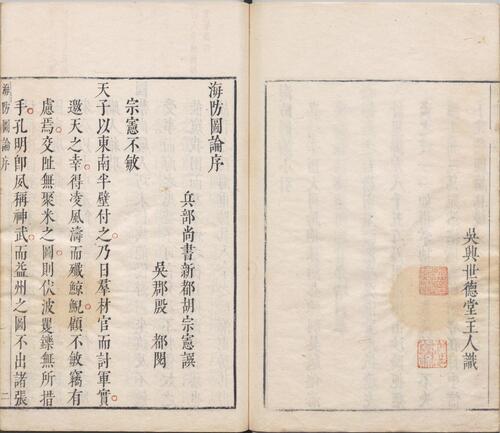 吳興世德堂主人識
海防圖論序
兵部尚書新都胡宗憲譔
吳郡殷都閱
宗憲不敏
天子以東南半壁付之乃日羣材官而討軍實
邀天之幸得凌風濤而殲鯨鯢顧不敏竊有
慮焉交趾無聚米之圖則伏波矍鑠無所措
手孔明卽夙稱神武而益州之圖不出諸張
海防圖論序
二